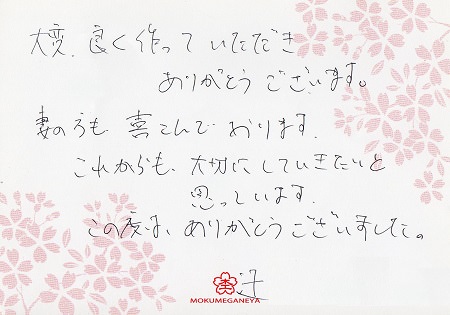 大変、良く作っていただき
ありがとうございます。
妻の方も喜こんでおります。
これからも、大切にしていきたいと
思っています。
この度は、ありがとうございました。
辻
MOKUMEGANEYA